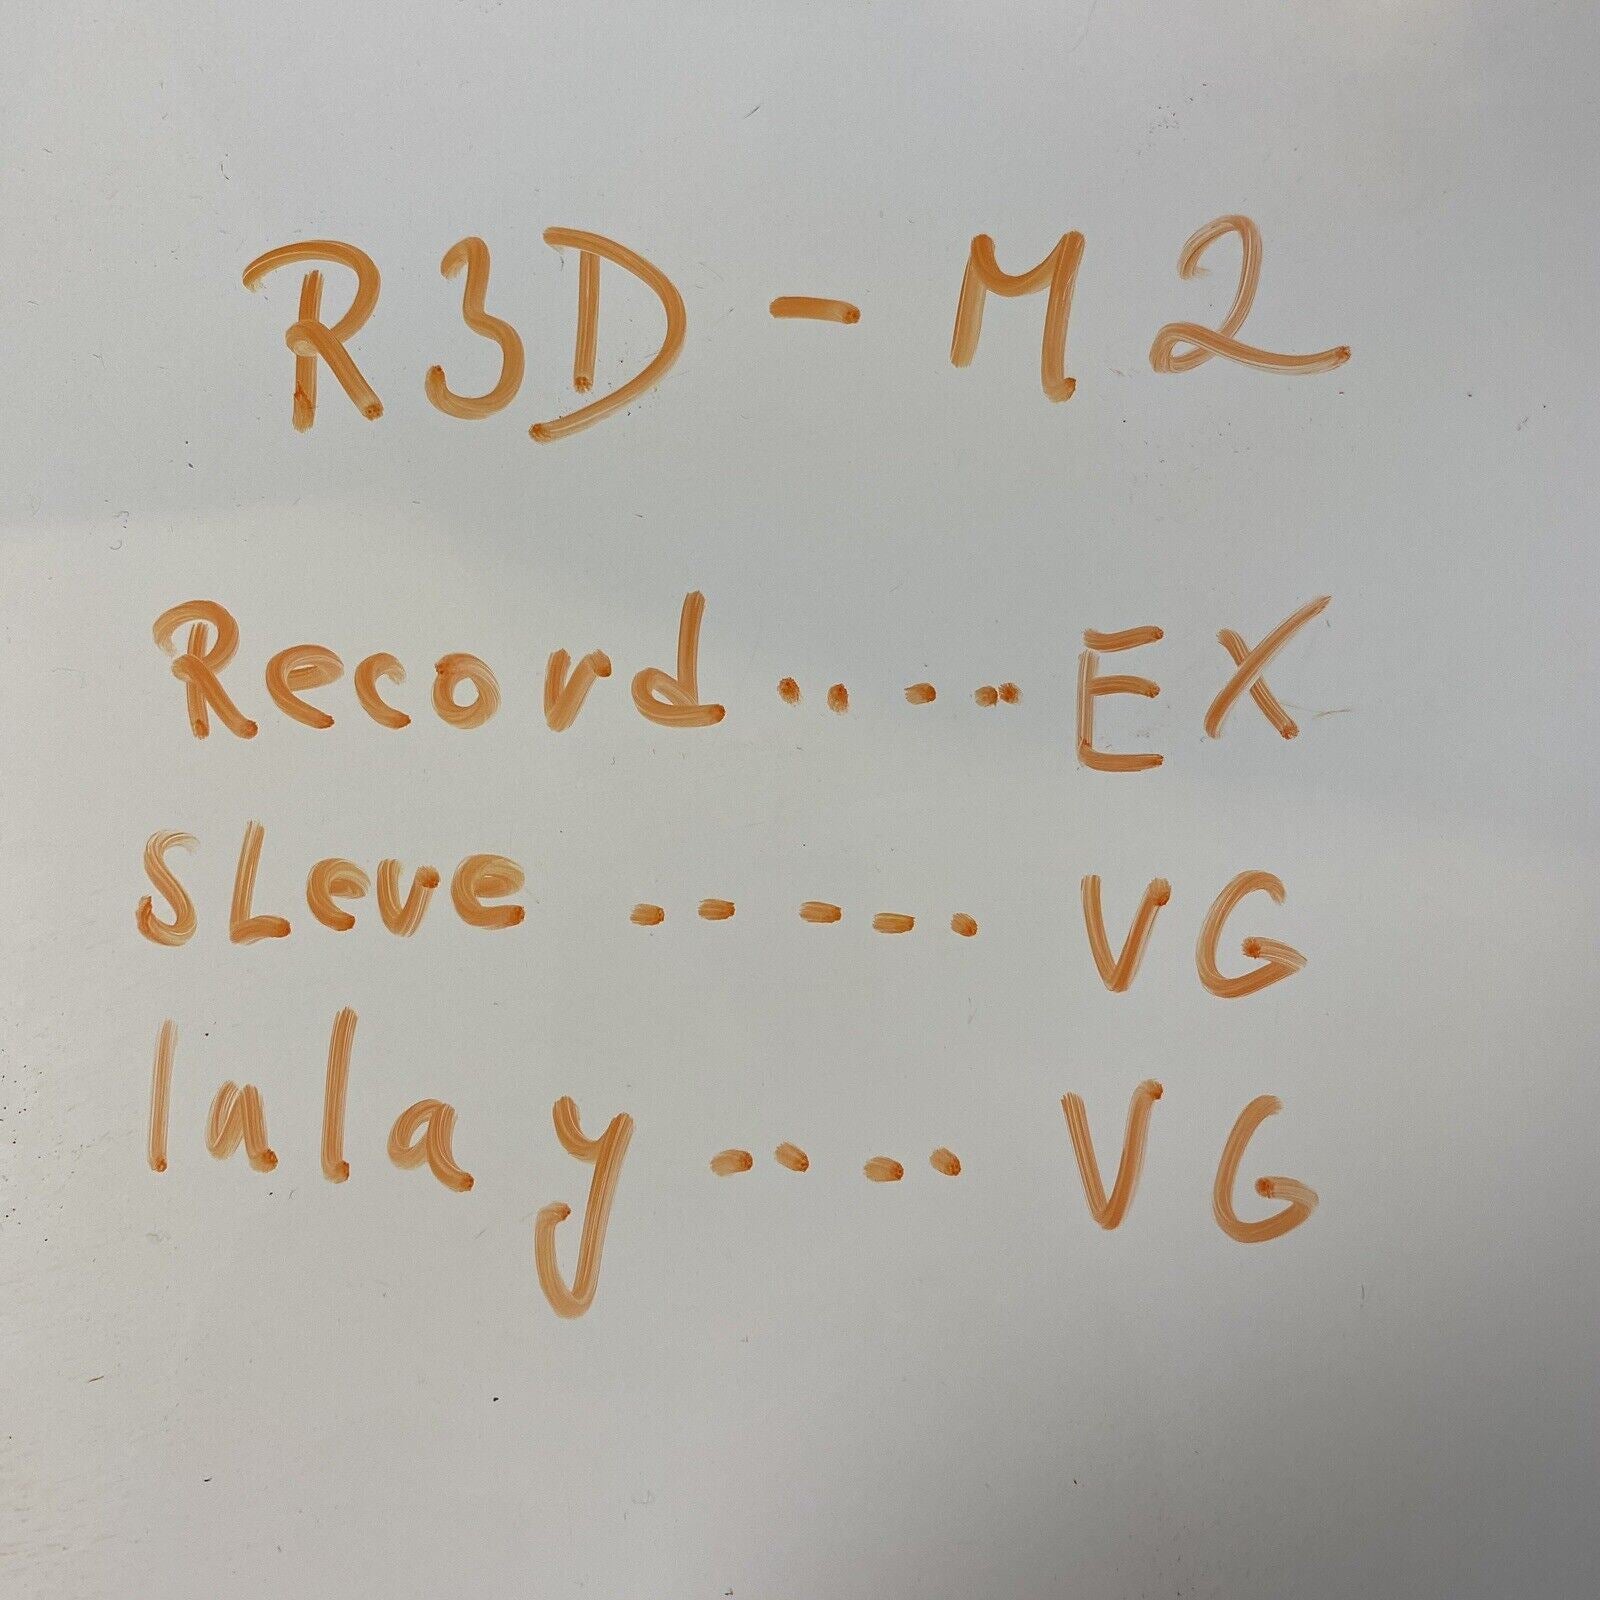 R3D - M2
Record ..... EX
SLeve ..... VG
Inlay .... VG